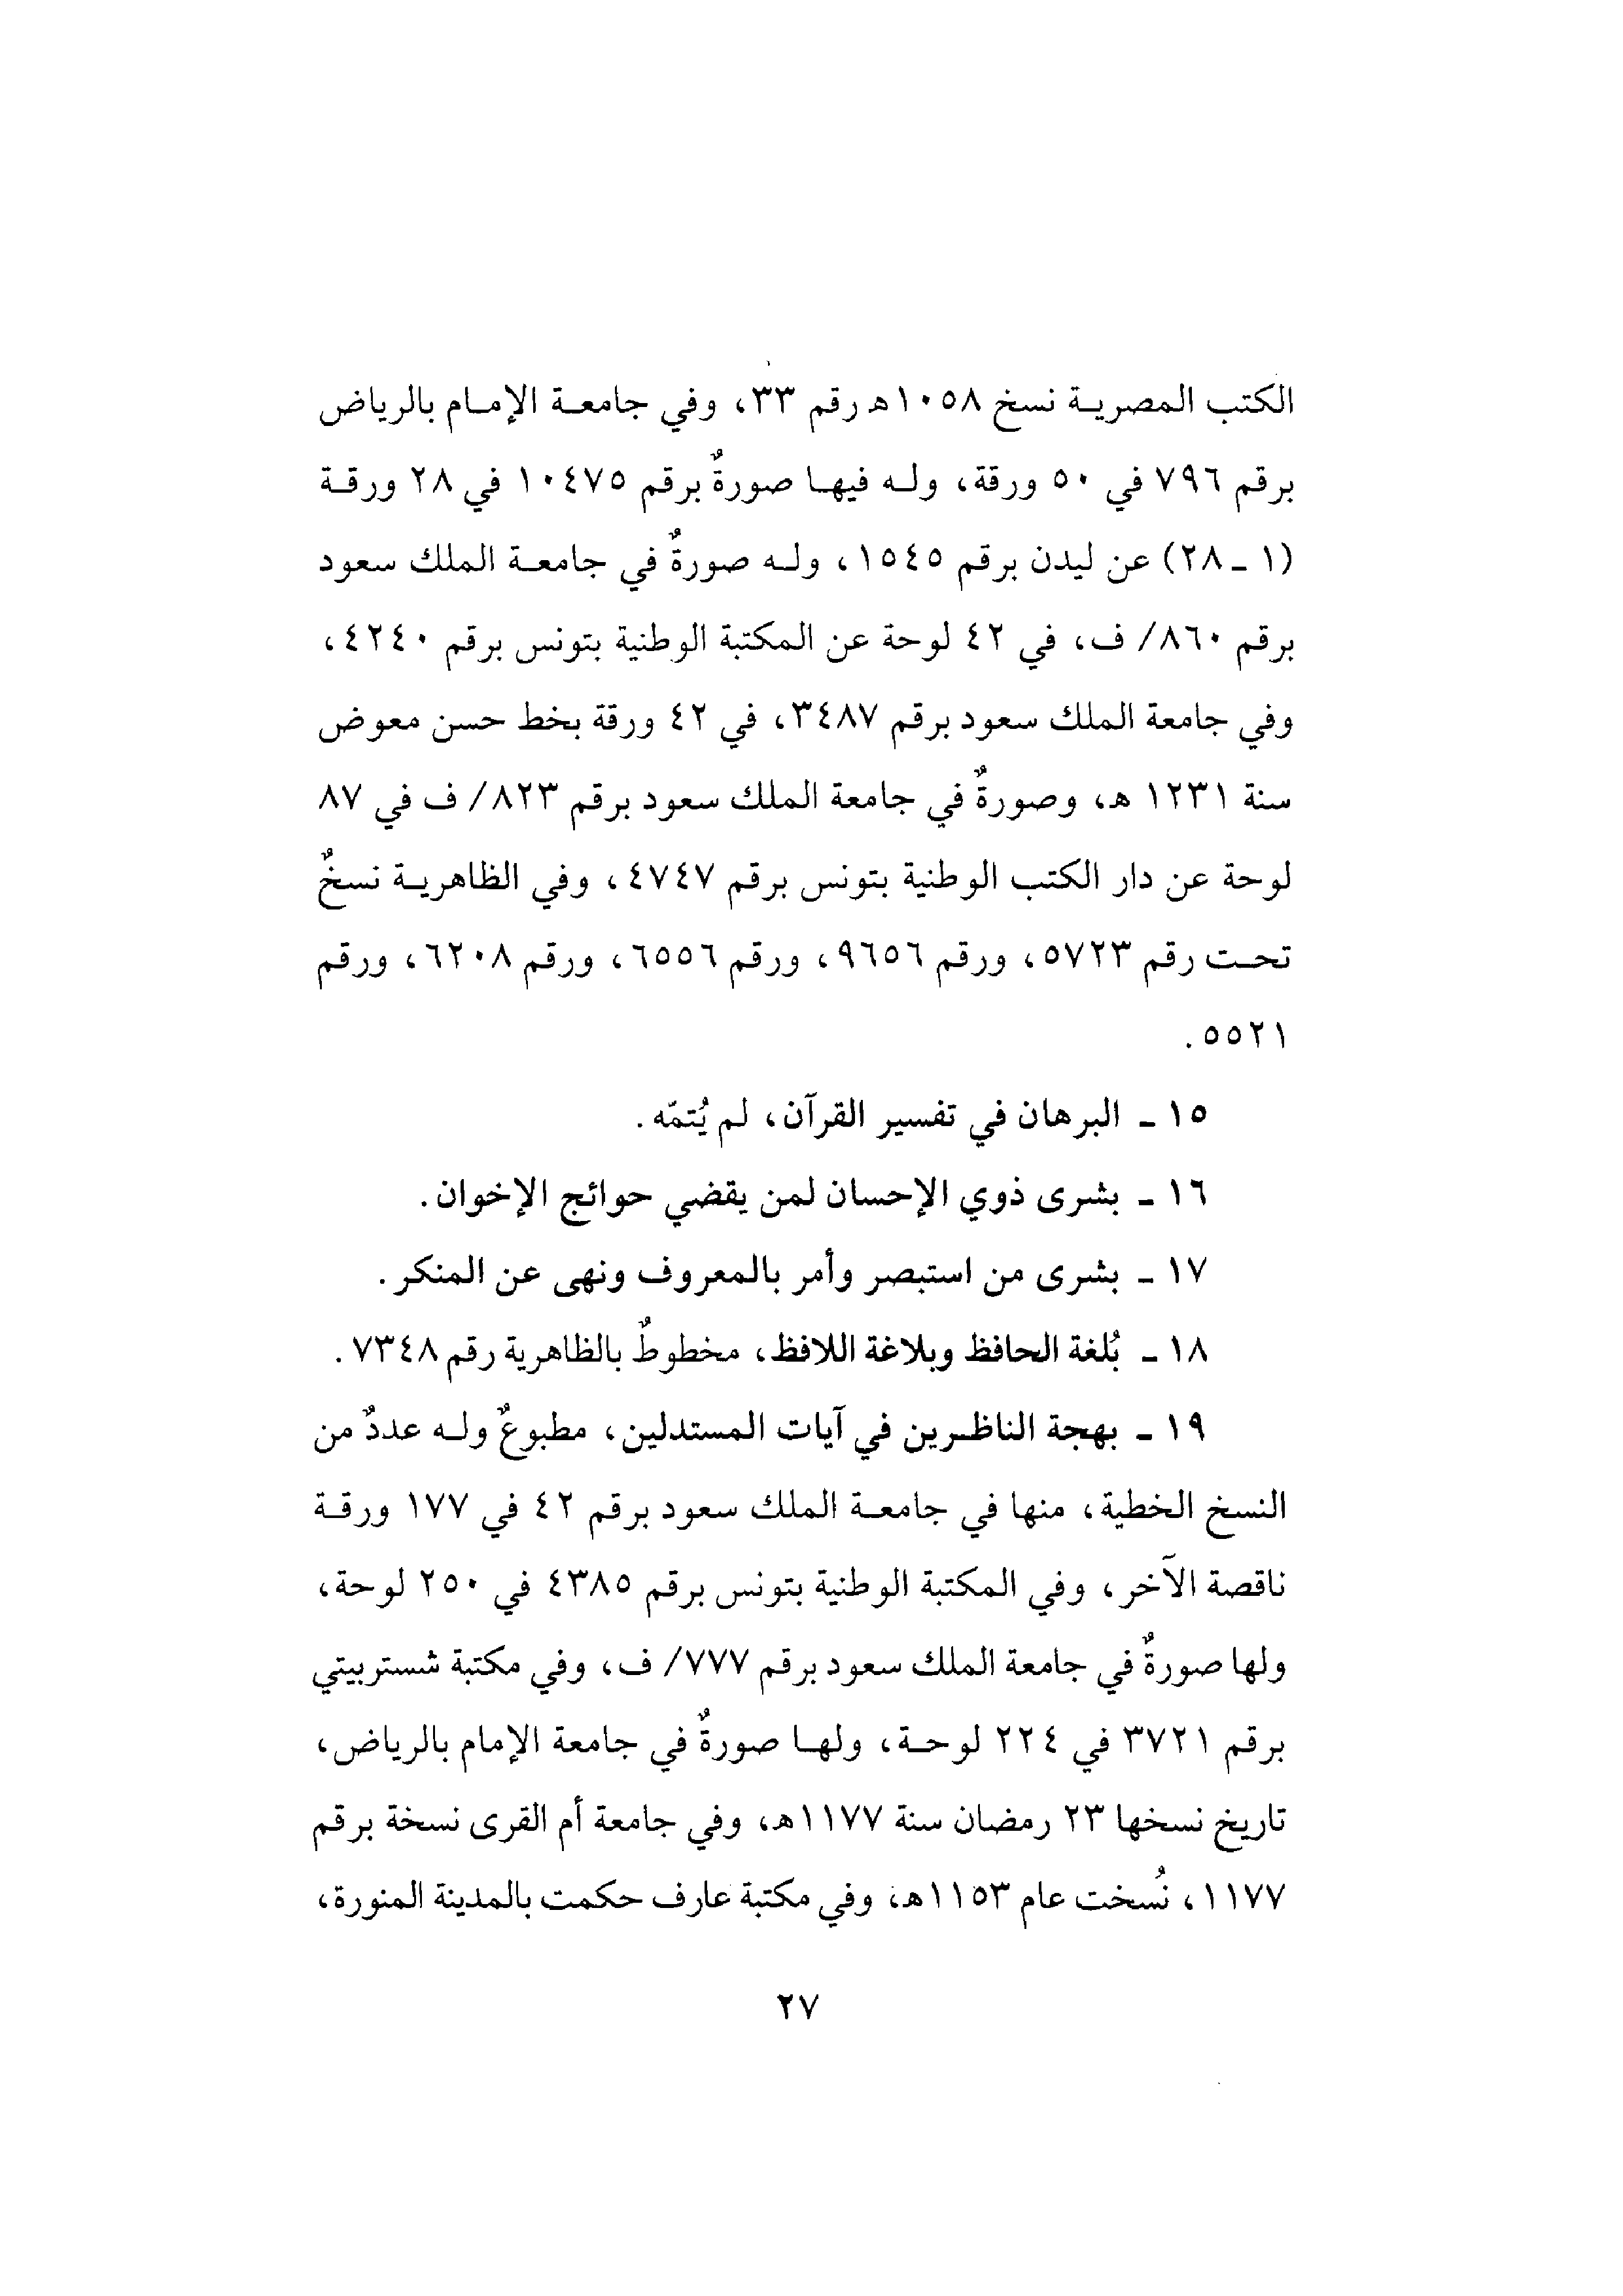 الكتب المصرية نسخ ١٠٥٨هـ رقم ٣٣، وفي جامعة الإمام بالرياض
برقم ٧٩٦ في ٥٠ ورقة، وله فيها صورةٌ برقم ١٠٤٧٥ في ٢٨ ورقة
(١ ـ ٢٨) عن ليدن برقم ١٥٤٥، وله صورةٌ في جامعة الملك سعود
برقم ٨٦٠/ ف، في ٤٢ لوحة عن المكتبة الوطنية بتونس برقم ٤٢٤٠،
وفي جامعة الملك سعود برقم ٣٤٨٧، في ٤٢ ورقة بخط حسن معوض
سنة ١٢٣١ هـ، وصورةٌ في جامعة الملك سعود برقم ٨٢٣/ ف في ٨٧
لوحة عن دار الكتب الوطنية بتونس برقم ٤٧٤٧، وفي الظاهرية نسخٌ
تحت رقم ٥٧٢٣، ورقم ٩٦٥٦، ورقم ٦٥٥٦، ورقم ٦٢٠٨، ورقم
٥٥٢١.
١٥ ـ البرهان في تفسير القرآن، لم يُتمّه.
١٦ ـ بشرى ذوي الإحسان لمن يقضي حوائج الإخوان.
١٧ ـ بشرى من استبصر وأمر بالمعروف ونهى عن المنكر.
١٨ ـ بُلغة الحافظ وبلاغة اللافظ، مخطوطٌ بالظاهرية رقم ٧٣٤٨.
١٩ ـ بهجة الناظرين في آيات المستدلين، مطبوعٌ وله عددٌ من
النسخ الخطية، منها في جامعة الملك سعود برقم ٤٢ في ١٧٧ ورقة
ناقصة الآخر، وفي المكتبة الوطنية بتونس برقم ٤٣٨٥ في ٢٥٠ لوحة،
ولها صورةٌ في جامعة الملك سعود برقم ٧٧٧/ ف، وفي مكتبة شستربيتي
برقم ٣٧٢١ في ٢٢٤ لوحة، ولها صورةٌ في جامعة الإمام بالرياض،
تاريخ نسخها ٢٣ رمضان سنة ١١٧٧هـ، وفي جامعة أم القرى نسخة برقم
١١٧٧، نُسخت عام ١١٥٣هـ، وفي مكتبة عارف حكمت بالمدينة المنورة،
٢٧